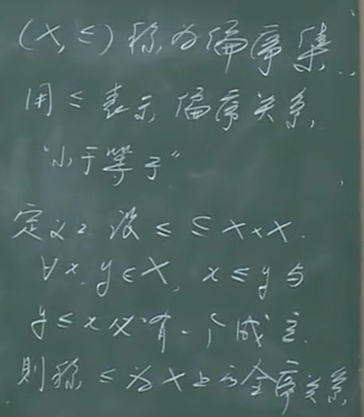 (X,≤)称为偏序集.
用≤表示偏序关系,
"小于等于"
定义2 设≤⊆X×X.
∀x,y∈X, x≤y与
y≤x必有一个成立.
则称≤为X上的全序关系